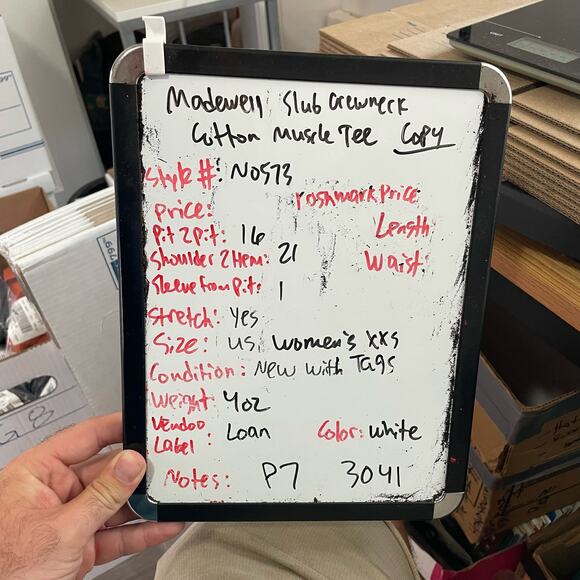 Madewell Slub Crewneck
Cotton Muscle Tee Copy
Style #: N0573
Poshmark Price:
Price:
Length:
Pit 2 Pit: 16
Shoulder 2 Hem: 21
Waist:
Sleeve From Pit: 1
Stretch: Yes
Size: US Women's XXS
Condition: New with Tags
Weight: 4oz
Vendoo
Label: Loan
Color: White
Notes: P7 3041